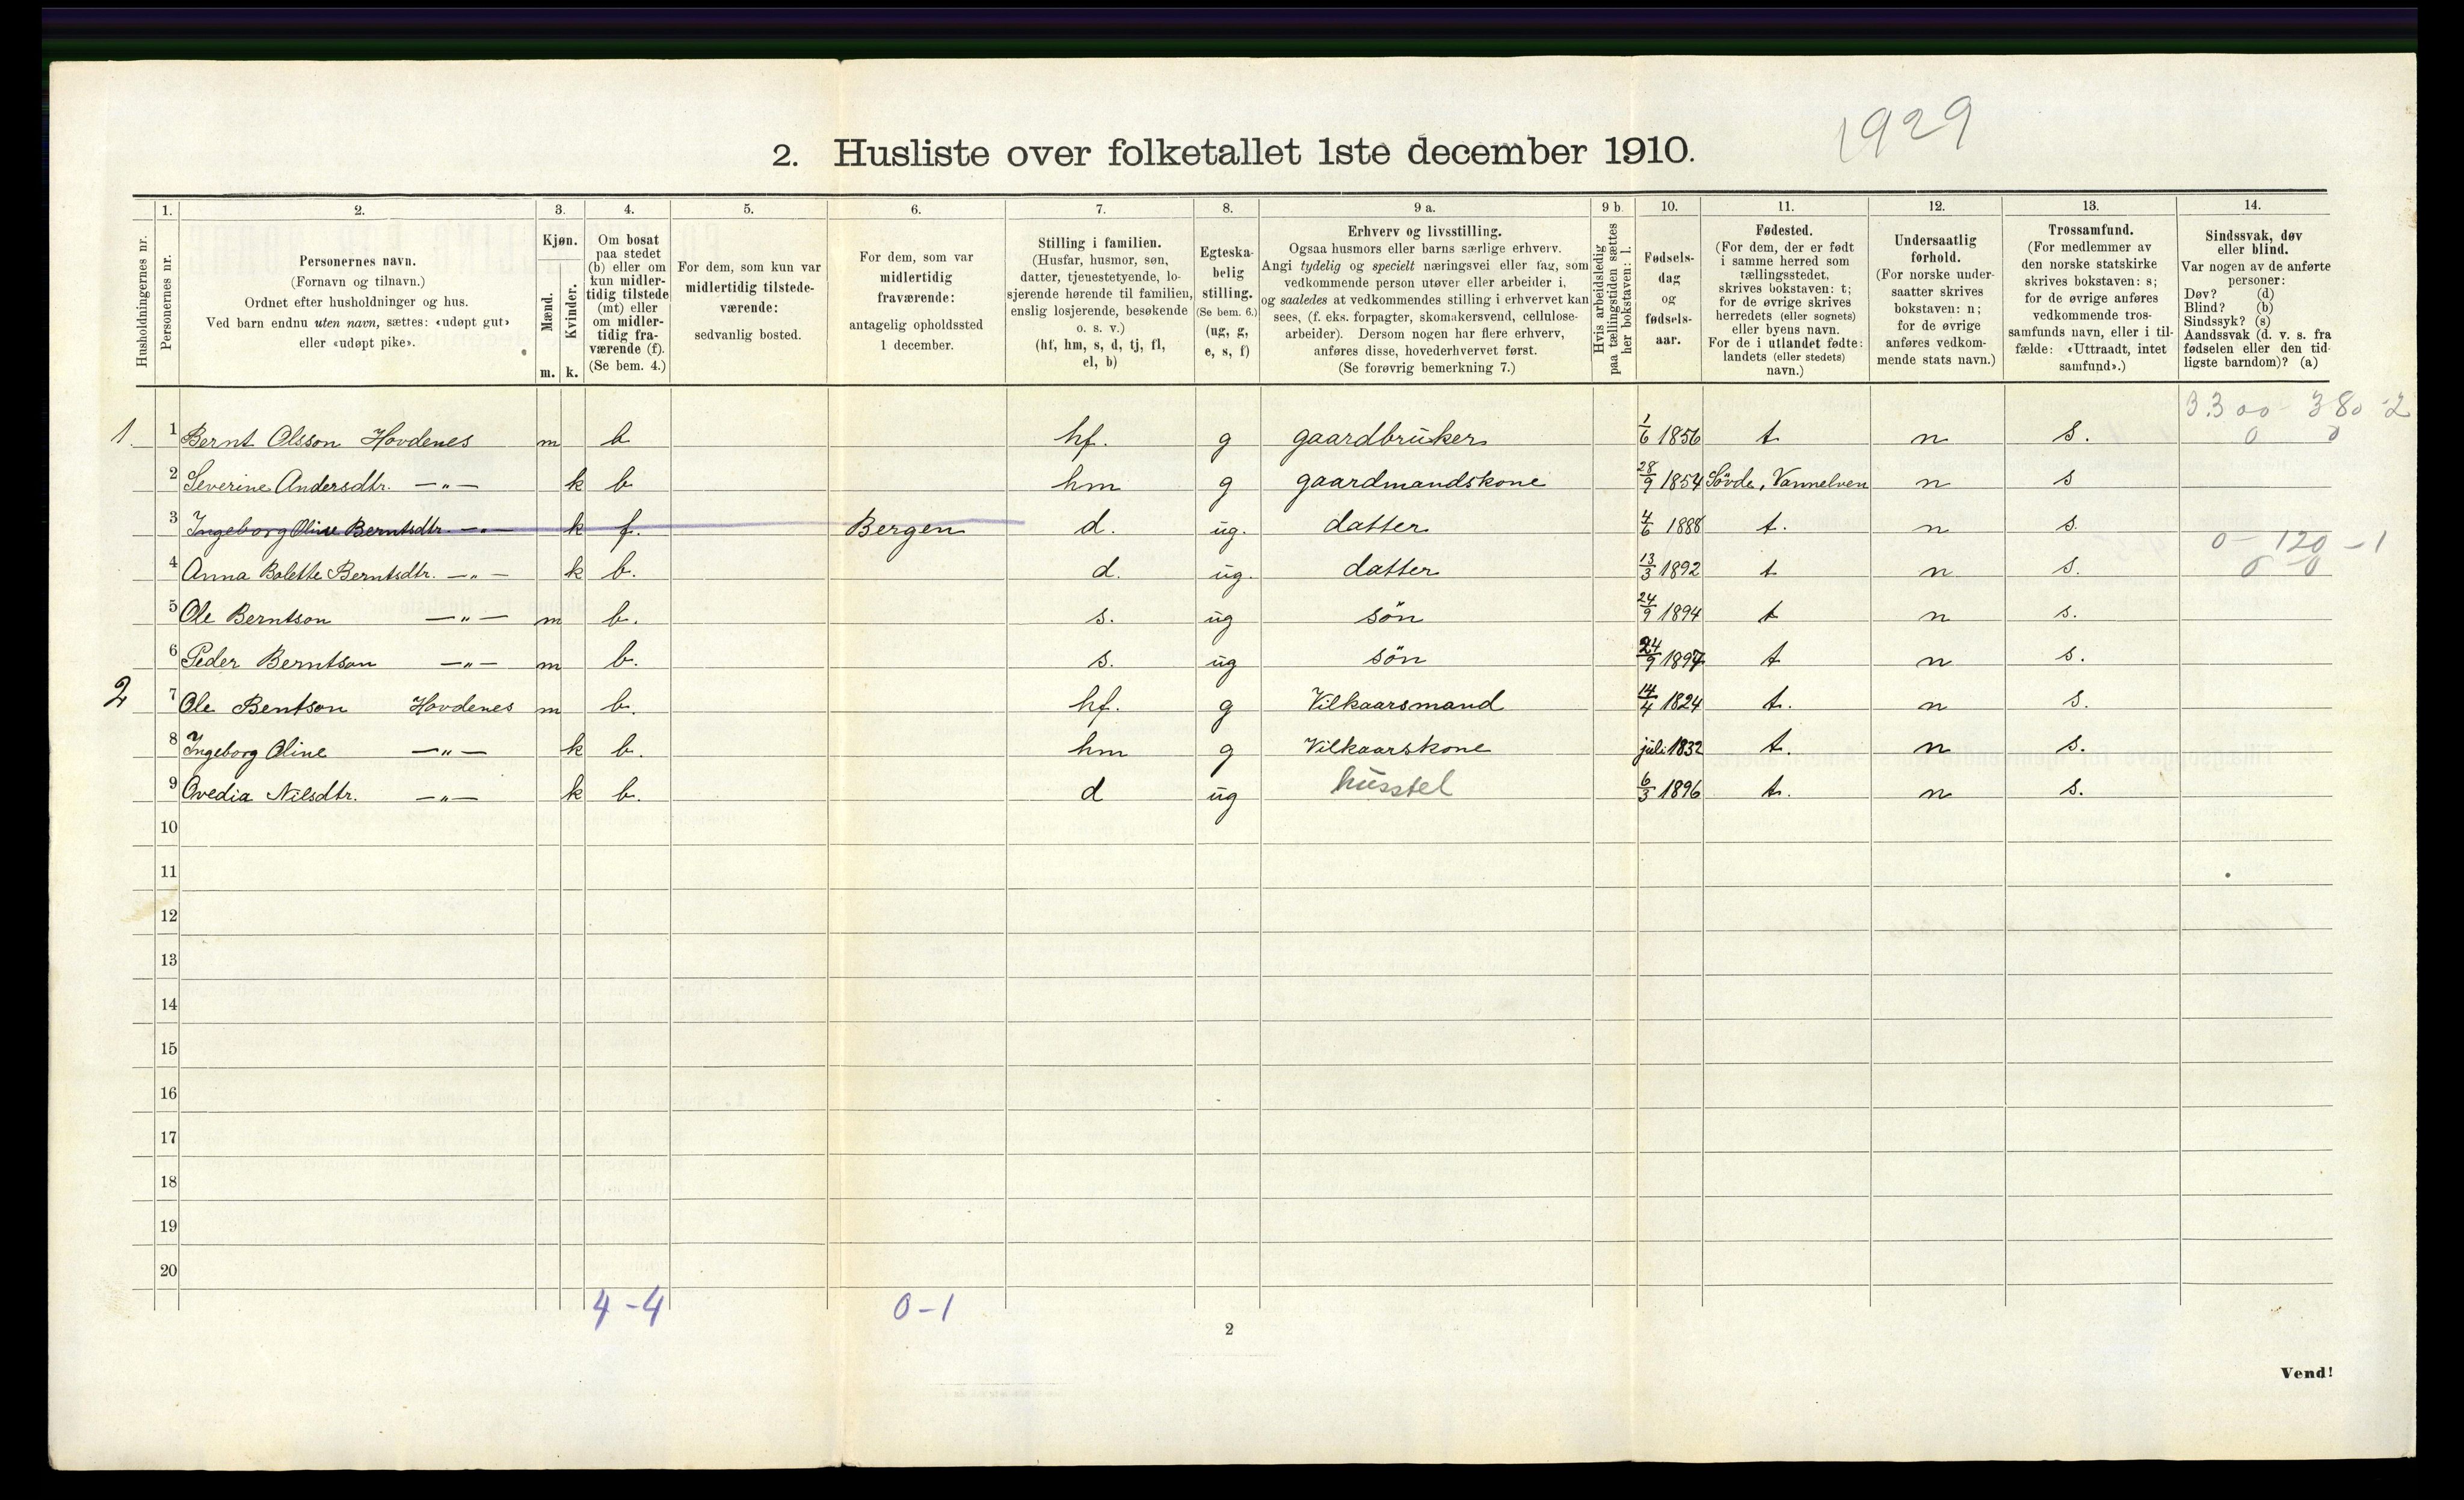 1929
2. Husliste over folketallet 1ste december 1910.
Husholdningernes nr.
1.
Personernes nr.
2.
Personernes navn.
(Fornavn og tilnavn.)
Ordnet efter husholdninger og hus.
Ved barn endnu uten navn, sættes: «udøpt gut»
eller «udøpt pike».
3.
Kjøn.
Mænd.
Kvinder.
m. k.
4.
Om bosat
paa stedet
(b) eller om
kun midler-
tidig tilstede
(mt) eller
om midler-
tidig fra-
værende (f).
(Se bem. 4.)
5.
For dem, som kun var
midlertidig tilstede-
værende:
sedvanlig bosted.
6.
For dem, som var
midlertidig
fraværende:
antagelig opholdssted
1 december.
7.
Stilling i familien.
(Husfar, husmor, søn,
datter, tjenestetyende, lo-
sjerende hørende til familien,
enslig losjerende, besøkende
o. s. v.)
(hf, hm, s, d, tj, fl,
el, b)
8.
Egteska-
belig
stilling.
(Se bem. 6.)
(ug, g,
e, s, f)
9 a.
Erhverv og livsstilling.
Ogsaa husmors eller barns særlige erhverv.
Angi tydelig og specielt næringsvei eller fag, som
vedkommende person utøver eller arbeider i,
og saaledes at vedkommendes stilling i erhvervet kan
sees, (f. eks. forpagter, skomakersvend, cellulose-
arbeider). Dersom nogen har flere erhverv,
anføres disse, hovederhvervet først.
(Se forøvrig bemerkning 7.)
9 b.
Hvis arbeidsledig
paa tællingstiden sættes
her bokstaven: l.
10.
Fødsels-
dag
og
fødsels-
aar.
11.
Fødested.
(For dem, der er født
i samme herred som
tællingsstedet,
skrives bokstaven: t;
for de øvrige skrives
herredets (eller sognets)
eller byens navn.
For de i utlandet fødte:
landets (eller stedets)
navn.)
12.
Undersaatlig
forhold.
(For norske under-
saatter skrives
bokstaven: n;
for de øvrige
anføres vedkom-
mende stats navn.)
13.
Trossamfund.
(For medlemmer av
den norske statskirke
skrives bokstaven: s;
for de øvrige anføres
vedkommende tros-
samfunds navn, eller i til-
fælde: «Uttraadt, intet
samfund».)
14.
Sindssvak, døv
eller blind.
Var nogen av de anførte
personer:
Døv? (d)
Blind? (b)
Sindssyk? (s)
Aandssvak (d. v. s. fra
fødselen eller den tid-
ligste barndom)? (a)
3300 - 380-2
1. 1 Bernt Olsson Hovdenes m b hf. g gaardbruker 1/6 1856 t n s. 0 0
2 Severine Andersdtr. —"— k b hm g gaardmandskone 28/9 1854 Sövde, Vannelven n s
3 Ingeborg Oline Berntsdtr. —"— k f. Bergen d. ug. datter 4/6 1888 t. n s.
0 - 120 - 1
4 Anna Bolette Berntsdtr. —"— k b. d. ug. datter 13/3 1892 t n s. 0 0
5 Ole Berntson —"— m b. s. ug søn 24/9 1894 t n s.
6 Peder Berntson —"— m b. s. ug søn 24/9 1897 t n s.
2 7 Ole Bentson Hovdenes m b. hf. g Vilkaarsmand 14/4 1824 t. n s.
8 Ingeborg Oline —"— k b. hm g Vilkaarskone juli 1832 t. n s.
9 Ovedia Nilsdtr. —"— k b. d ug husstel 6/3 1896 t. n s.
10
11
12
13
14
15
16
17
18
19
20
4-4 0-1
2
Vend!